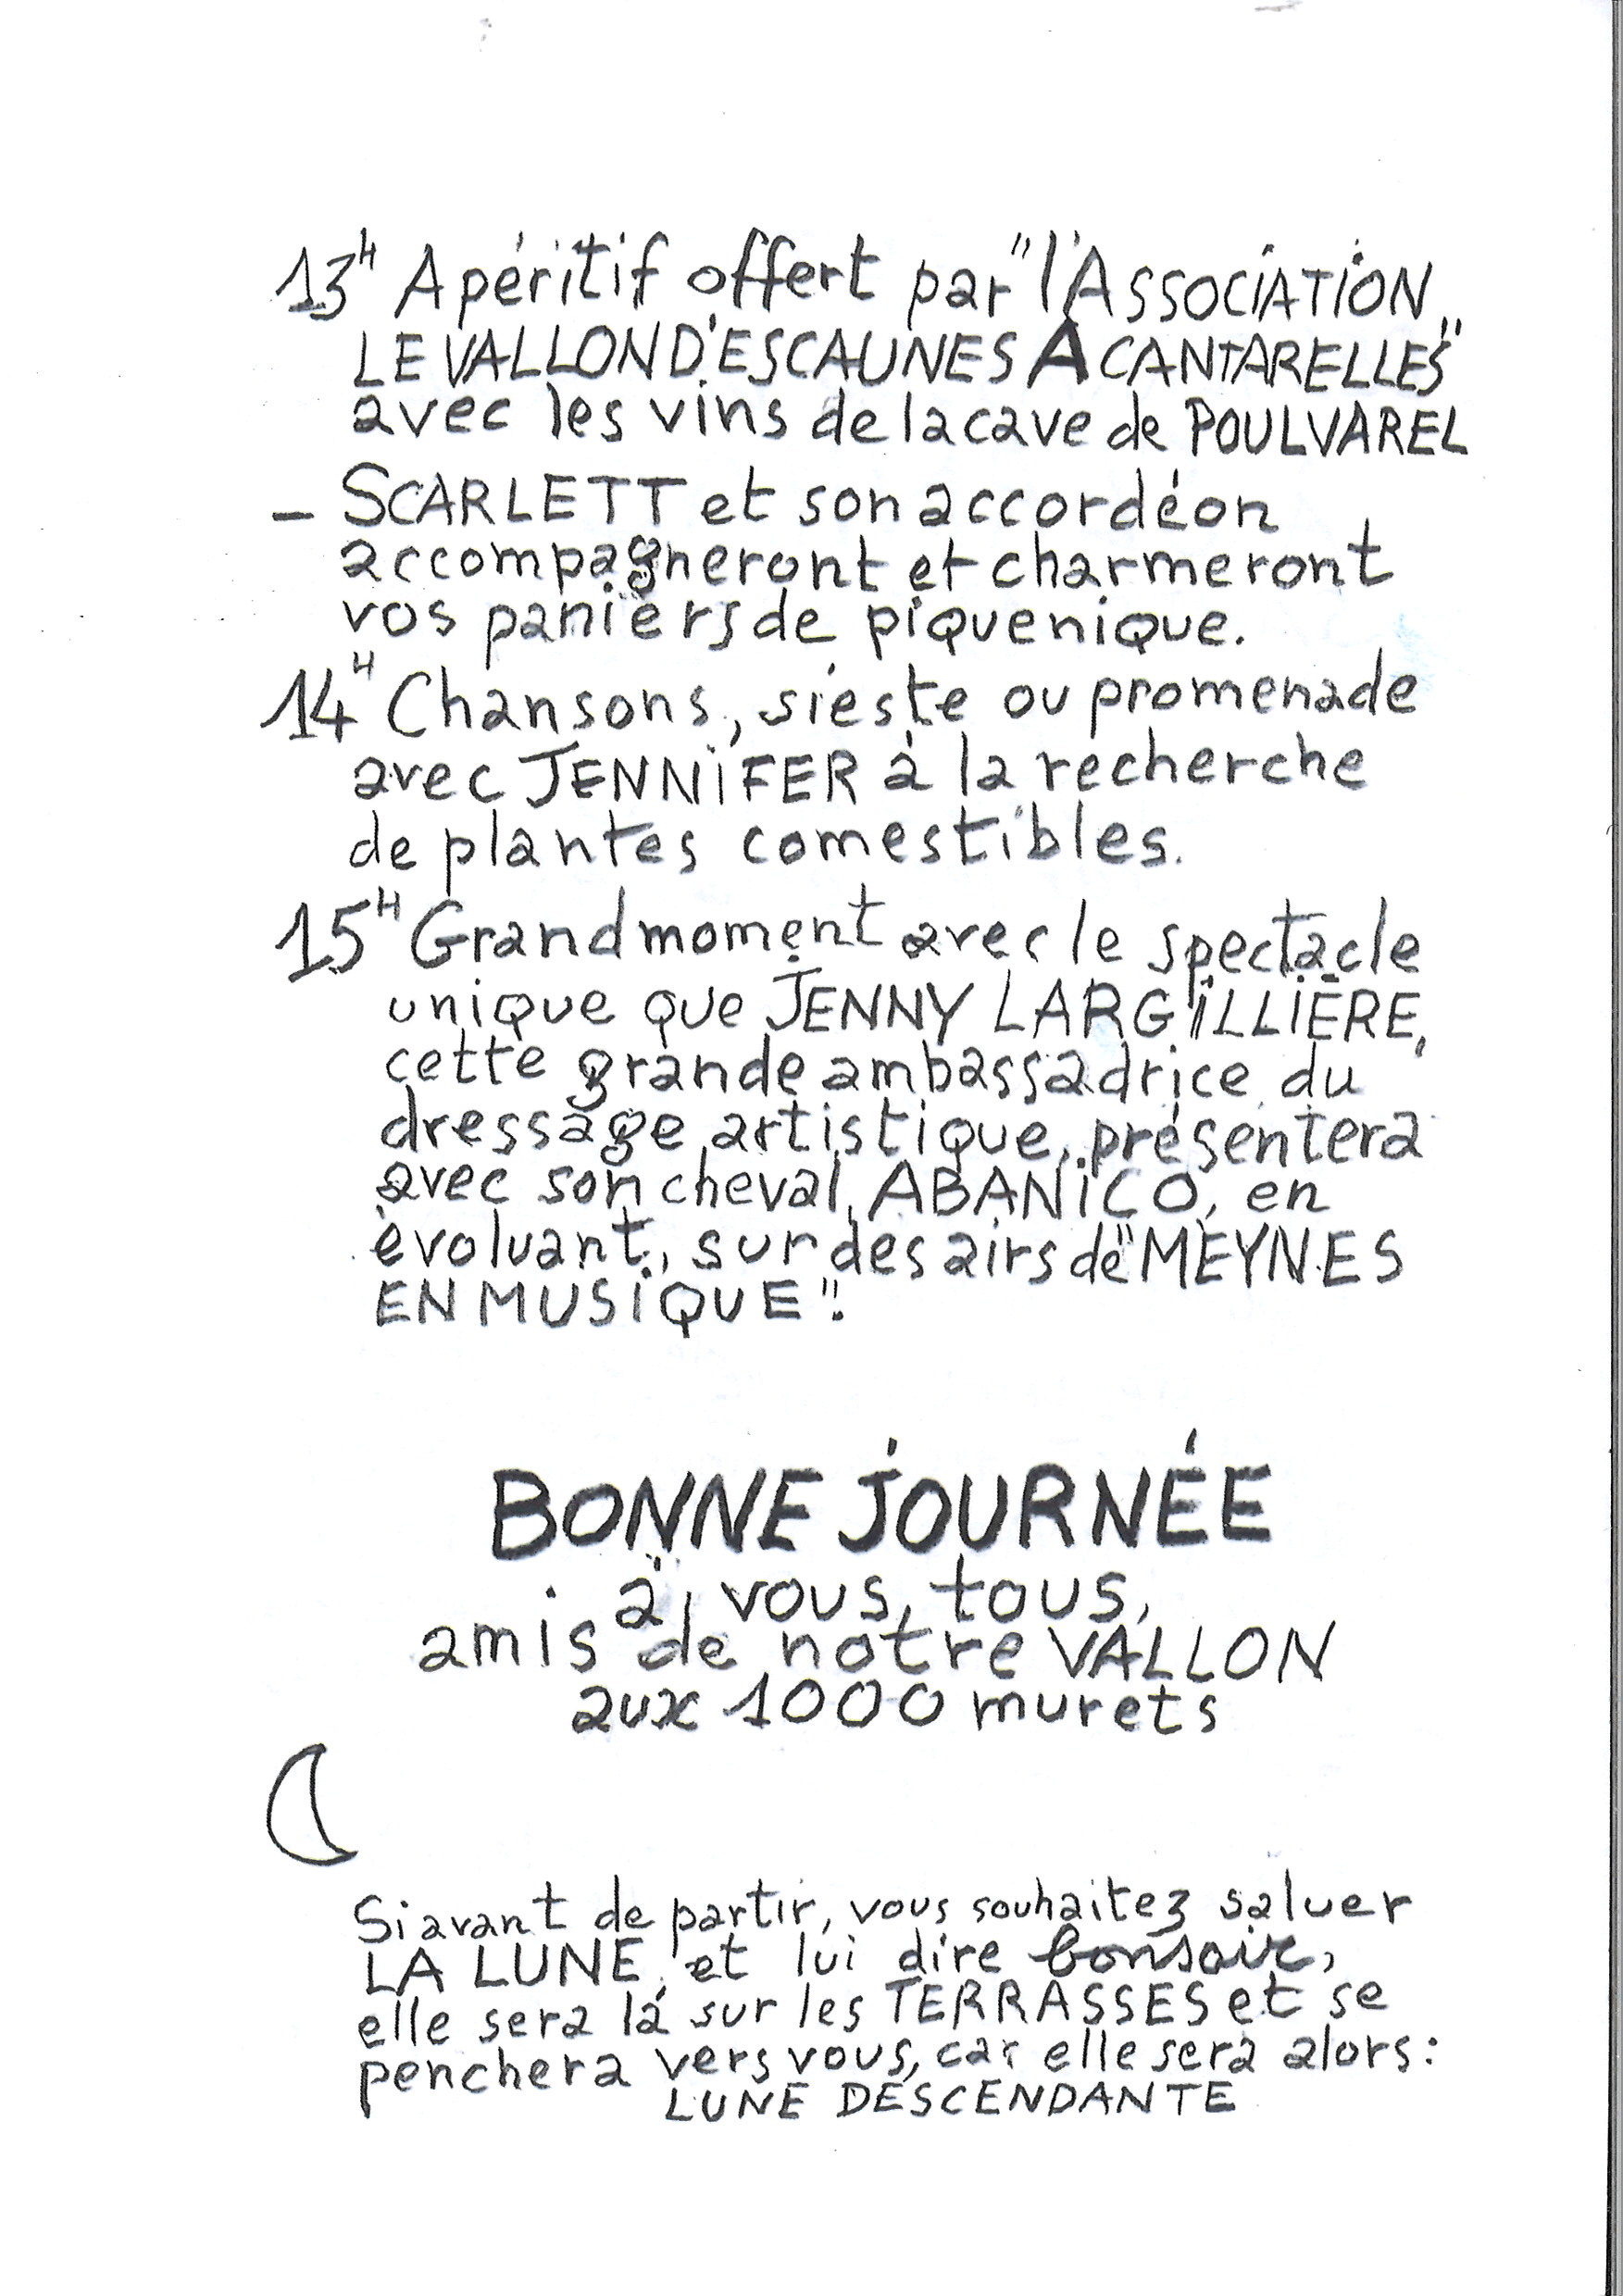 13H Apéritif offert par "l'ASSOCIATION
LE VALLON D'ESCAUNES A CANTARELLES"
avec les vins de la cave de POULVAREL
- SCARLETT et son accordéon
accompagneront et charmeront
vos paniers de piquenique.
14H Chansons, sieste ou promenade
avec JENNIFER à la recherche
de plantes comestibles.
15H Grand moment avec le spectacle
unique que JENNY LARGILLIÈRE,
cette grande ambassadrice du
dressage artistique, présentera
avec son cheval, ABANICO, en
évoluant, sur des airs de "MEYNES
EN MUSIQUE".
BONNE JOURNÉE
à, vous, tous,
amis de notre VALLON
aux 1000 murets
Si avant de partir, vous souhaitez saluer
LA LUNE, et lui dire bonsoir,
elle sera là sur les TERRASSES et se
penchera vers vous, car elle sera alors:
LUNE DESCENDANTE